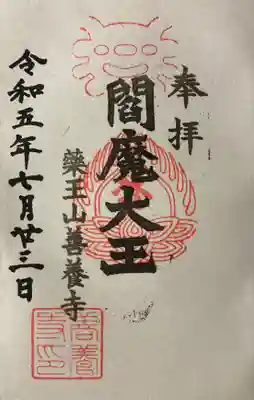 奉拝
閻魔大王
藥王山善養寺
令和五年七月廿三日
善養寺印